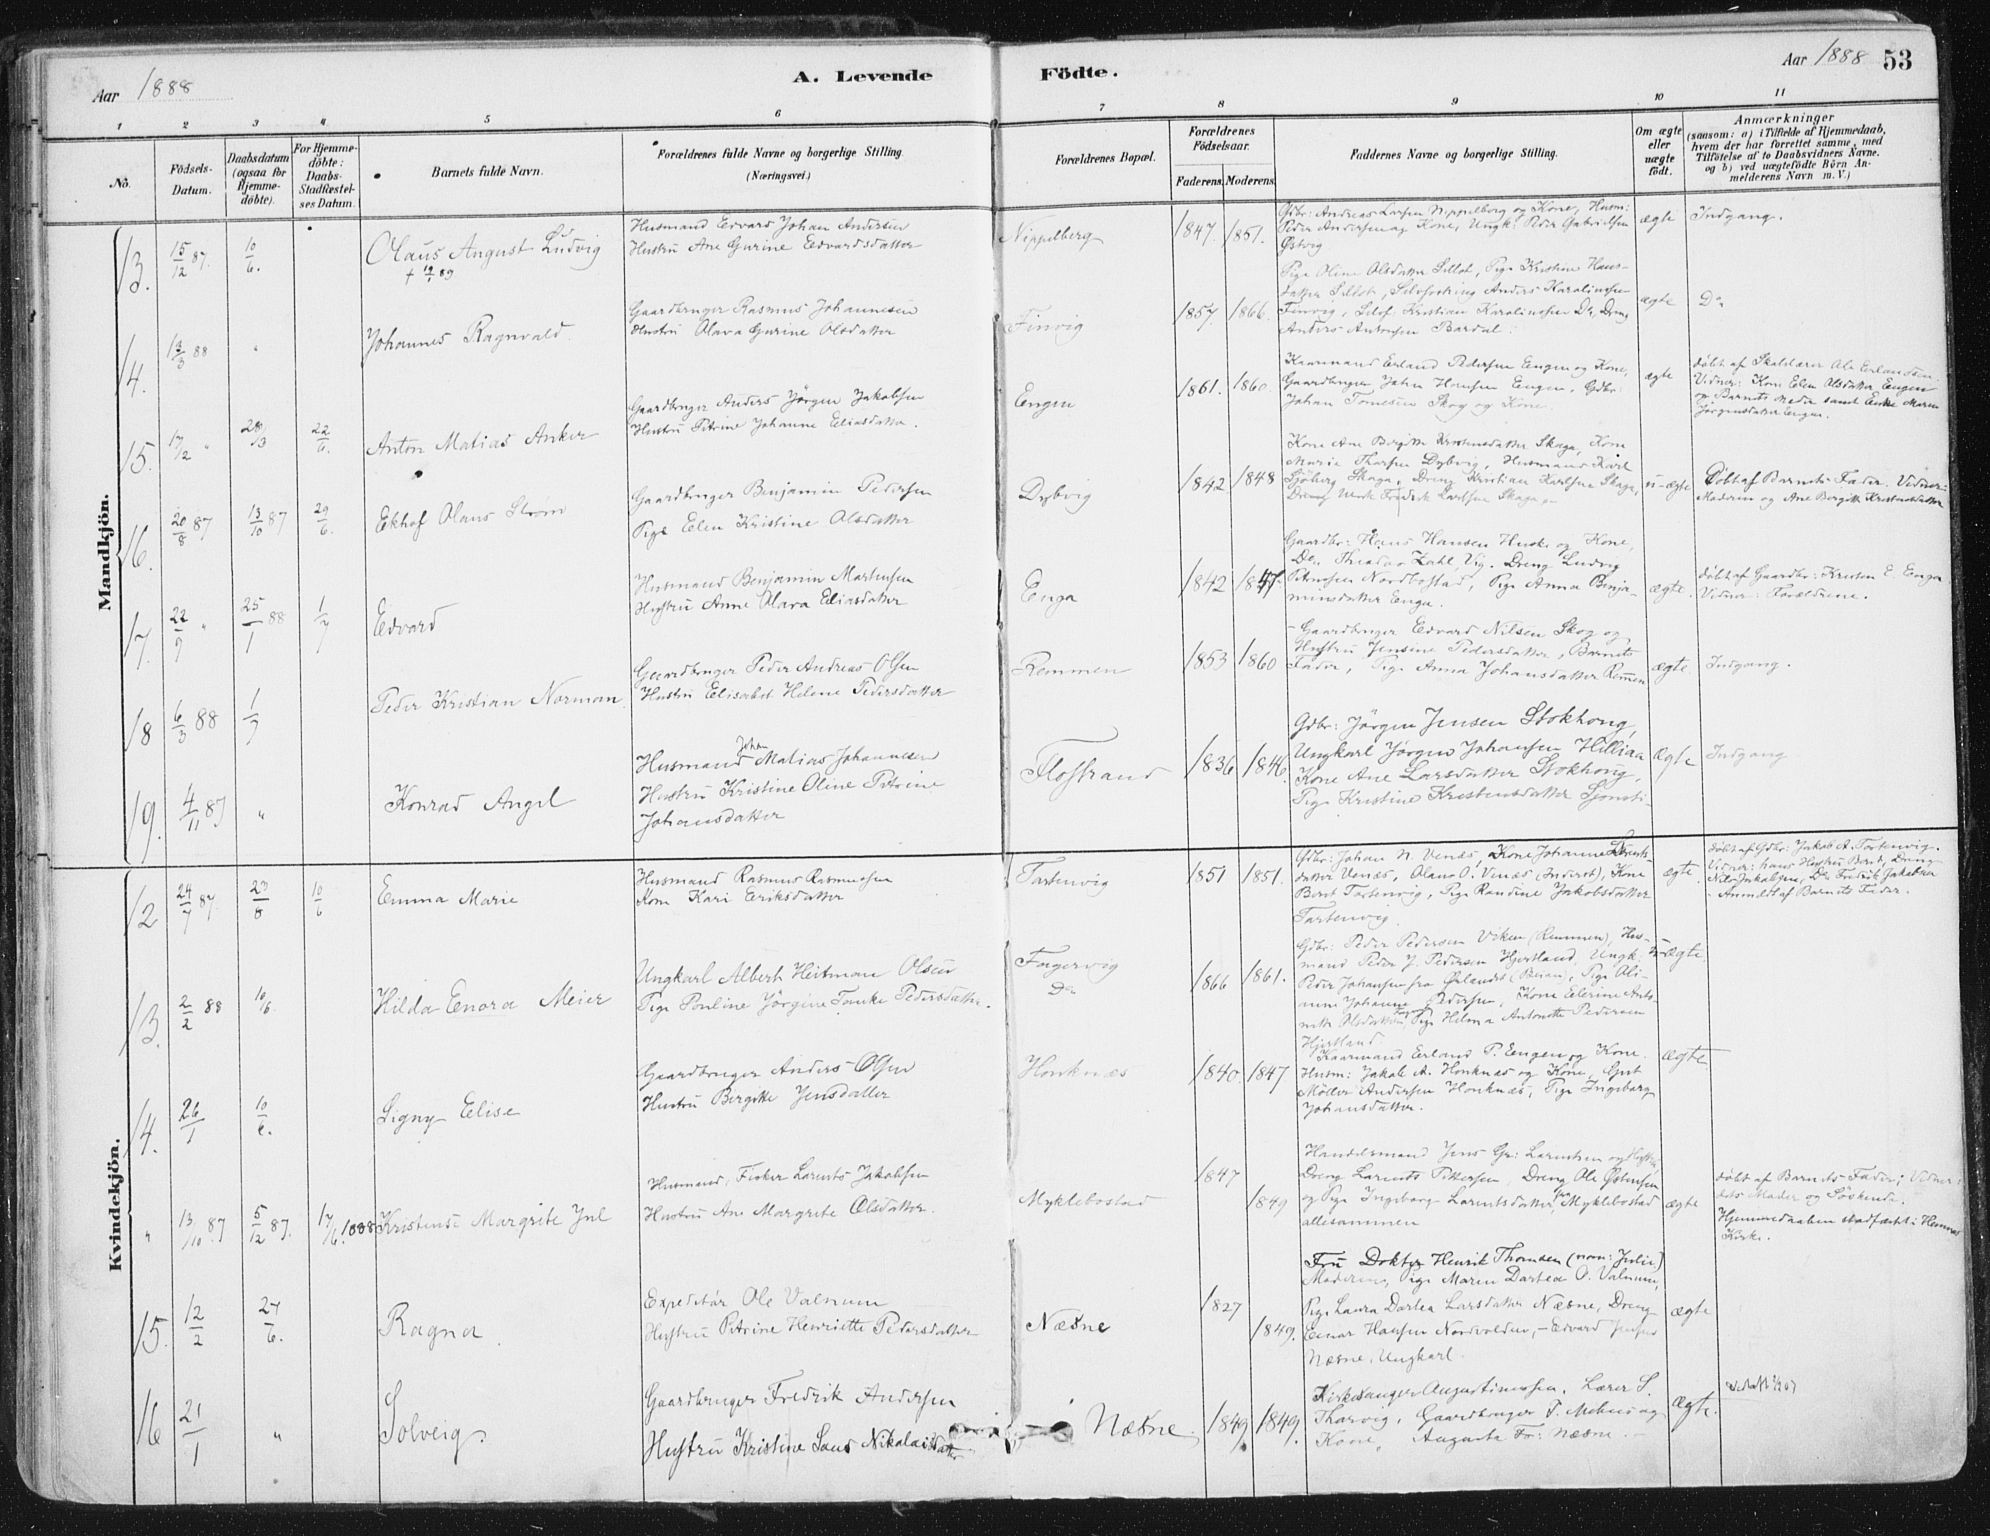 Aar 1888
A. Levende Födte.
Aar 1888 53
1 2 3 4 5 6 7 8 9 10 11
No.
Födsels-Datum.
Daabsdatum (ogsaa for Hjemme-döbte).
For Hjemme-döbte: Daabs-Stadfæstel-ses Datum.
Barnets fulde Navn.
Forældrenes fulde Navne og borgerlige Stilling (Næringsvei.)
Forældrenes Bopæl.
Forældrenes Födselsaar.
Faderens. Moderens.
Faddernes Navne og borgerlige Stilling.
Om ægte eller uægte födt.
Anmærkninger
(saasom: a) i Tilfælde af Hjemmedaab,
hvem der har forrettet samme, med
Tilföielse af to Daabsvidners Navne.
og b) ved uægtefödte Börn An-
melderens Navn m. V.)
Mandkjön.
13. 15/12 87. 10/6. Olaus August Ludvig
Husmand Edvard Johan Andersen
Hustru Ane Gurine Edvardsdatter
Nippelberg 1847. 1851.
Gdbr: Andreas Larsen Nippelberg og Kone, Husm:
Peder Andersen og Kone, Ungk: Peder Gabrielsen
ægte Indgang.
14. 13/3 88 " Johannes Ragnvald.
Gaardbruger Rasmus Johannesen
Hustru Olava Gurine Olsdatter
Finvig 1857. 1866.
Pige Oline Olsdatter Sillot, Pige Kristine Hans-
datter Sillot, Anders Karolinsen
Finvig, Kristian Karolinsen Do, Dreng
Anders Antonsen Bardal.
ægte Do
15. 17/2 " 28/3 22/6. Anton Matias Anker
Gaardbruger Anders Jörgen Jakobsen
Hustru Petrine Johanne Eliasdatter.
Engen 1861. 1860
Kaarmand Erland Pedersen Engen og Kone,
Gaardbruger John Hansen Engen, Gdbr:
Johan Tomesen Skog og Kone.
ægte
döbt af Skolelærer Ole Erlandsen
Vidner: Kone Elen Olsdatter Engen
og Barnets Moder samt Enke Maren
Jörgensdatter Engen.
16. 20/8 87 13/10 87 29/6. Ekhof Olaus Ström
Gaardbruger Benjamin Pedersen
Pige Elen Kristine Olsdatter
Dybvig 1842 1848
Kone Ane Bergitte Kristensdatter Skaga, Kone
Marie Tharsen Dybvig, Husmand Karl
Sjöberg Skaga, Dreng Kristian Karlsen Skaga,
Dreng Fredrik Karlsen Skaga.
u-ægte
Döbt af Barnets Fader. Vidner:
Moderen og Ane Bergitte Kristensdatter
17. 22/9 " 25/1 88 1/7 Edvard
Husmand Benjamin Martinsen
Hustru Anne Olava Eliasdatter
Enga 1842 1847.
Gaardbr: Hans Hansen Huske og Kone,
Do Theodor Zahl, Vig. Dreng Ludvig
Petersen Nordbostad, Pige Anna Benja-
minsdatter Enga.
ægte.
döbt af Gaardbr: Kristen E. Enga
Vidner: Forældrene.
18 6/3 88 1/7 Peder Kristian Norman.
Gaardbruger Peder Andreas Olsen
Hustru Elisabet Helene Pedersdatter
Remmen 1853 1860
Gaardbruger Edvard Nilsen Skog og
Hustru Jensine Pedersdatter, Barnets
Fader, Pige Anna Johansdatter Remmen
ægte Indgang.
19. 4/11 87 " Konrad Angel
Husmand Johan Matias Johannesen
Hustru Kristine Oline Petrine
Johansdatter
Flostrand 1836 1846.
Gdbr: Jörgen Jensen Stokhong,
Ungkarl Jörgen Johansen Hilliaa
Kone Ane Larsdatter Stokhong,
Pige Kristine Kristensdatter Sjonsti.
Ægte Indgang
Kvindekjön.
12 24/7 87. 23/8 10/6 Emma Marie
Husmand Rasmus Rasmussen
Kone Kari Eriksdatter
Tortenvig 1851 1851.
Gdbr: Johan N. Venæs, Kone Johanne Larents-
datter Venæs, Olaus O. Venæs (Inderst), Kone
Berit Tortenvig, Pige Randine Jakobsdatter
Tortenvig.
ægte.
döbt af Gdbr: Jakob A. Tortenvig.
Vidner: hans Hustru Berit, Dreng
Nils Jakobsen, Do Fredrik Jakobsen
- Anmeldt af Barnets Fader.
13. 2/2 88 10/6. Hilda Enora Meier
Ungkarl Albert Heitman Olsen
Pige Pauline Jörgine Tanke Pedersdatter.
Fagervig
Do 1866 1861.
Gdbr: Peder Pedersen Viken (Remmen), Hus-
mand Peder J. Pedersen Hjertland, Ungk:
Peder Johansen fra Ørlandet (Beian), Pige Oli-
anne Johanne Pedersen, Kone Elerine Anto-
nette Olsdatter, Pige Hilma Antonette Pedersen
Hjertland
u-ægte
14. 26/1 10/6. Signy Elise
Gaardbruger Anders Olsen
Hustru Bergitte Jensdatter
Honknæs 1840. 1847
Kaarmand Erland P. Engen og Kone.
Husm: Jakob A. Honknæs og Kone, Gut
Möller Andersen Honknæs, Pige Ingeborg
Johansdatter.
ægte
" 13/10. 87 5/12 87. 17/6. 1888 Kristense Margrite Jul
Husmand, Fisker Larents Jakobsen
Hustru Ane Margrete Olsdatter.
Myklebostad 1847 1849
Handelsmand Jens Gr: Larentsen og Hustru
Dreng Larents Pettersen, Dreng Ole Østensen
og Pige Ingeborg Larentsdatter, fra Myklebostad
allesammen
ægte
döbt af Barnets Fader; Vidner:
dets Moder og Söskende.
Hjemmedaaben stadfæstet i Hemnes
Kirke.
15. 12/2 24/6. Ragna
Expeditör Ole Valnum
Hustru Petrine Henriette Pedersdatter
Næsne 1827 1849.
Fru Doktor Henrik Thomsen (nom: Julie)
Moderen, Pige Maren Dortea O. Valnum,
Pige Laura Dortea Larsdatter Næsne, Dreng
Einar Hansen Nordvolden, - Edvard Jensen
Næsne, Ungkarl.
ægte
16 21/1 " Solveig.
Gaardbruger Fredrik Andersen
Hustru Kristine Nikolaisdatter
Næsne. 1849 1849.
Kirkesanger Augustinussen, Lærer S.
Tharvig, Gaardbruger P. Mebus og
Kone, Augusta Fr: Næsne.
Ægte.